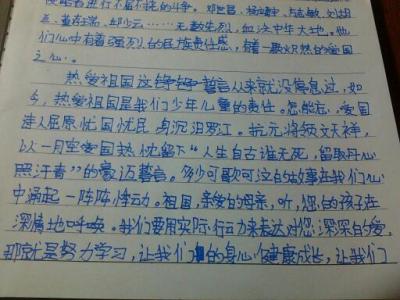 侵略者进行不屈不挠的斗争。邓世昌、杨靖宇、左志敏、刘胡
兰、董存瑞、邱少云……无数先烈，血沃中华大地。他
们心中有着强烈的民族责任感，有着一颗火炽热的爱国
之心。
热爱祖国这铮铮誓言从来就没停息过，如
今，热爱祖国是我们少年儿童的责任。怎能忘，爱国
诗人屈原忧国忧民身沉汨罗江。抗元将领文天祥，
以一片至爱国热忱留下“人生自古谁无死，留取丹心
照汗青”的豪迈誓言。多少可歌可泣的故事在我们心
中涌起一阵阵悸动。祖国，亲爱的母亲，听，您的孩子在
深情地呼唤。我们要用实际行动来表达对您深深的爱，
那就是努力学习，让我们的身心健康成长，让我们